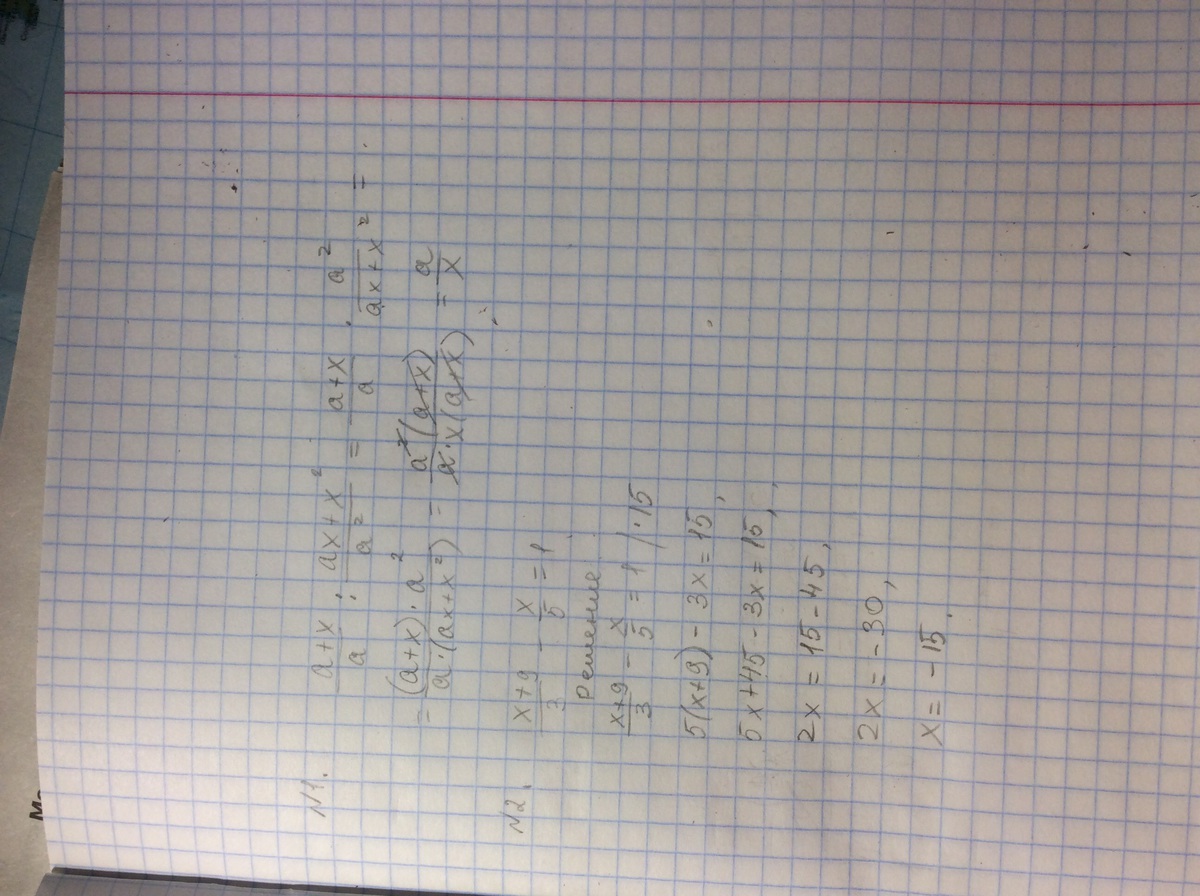 N1. (a+x)/a : (ax+x²)/a² = (a+x)/a · a²/(ax+x²) =
= (a+x)·a²/(a·(ax+x²)) = a²(a+x)/(a·x(a+x)) = a/x
N2. (x+9)/3 - x/5 = 1
Решение
(x+9)/3 - x/5 = 1 /·15
5(x+9) - 3x = 15,
5x+45-3x = 15,
2x = 15-45,
2x = -30,
x = -15.